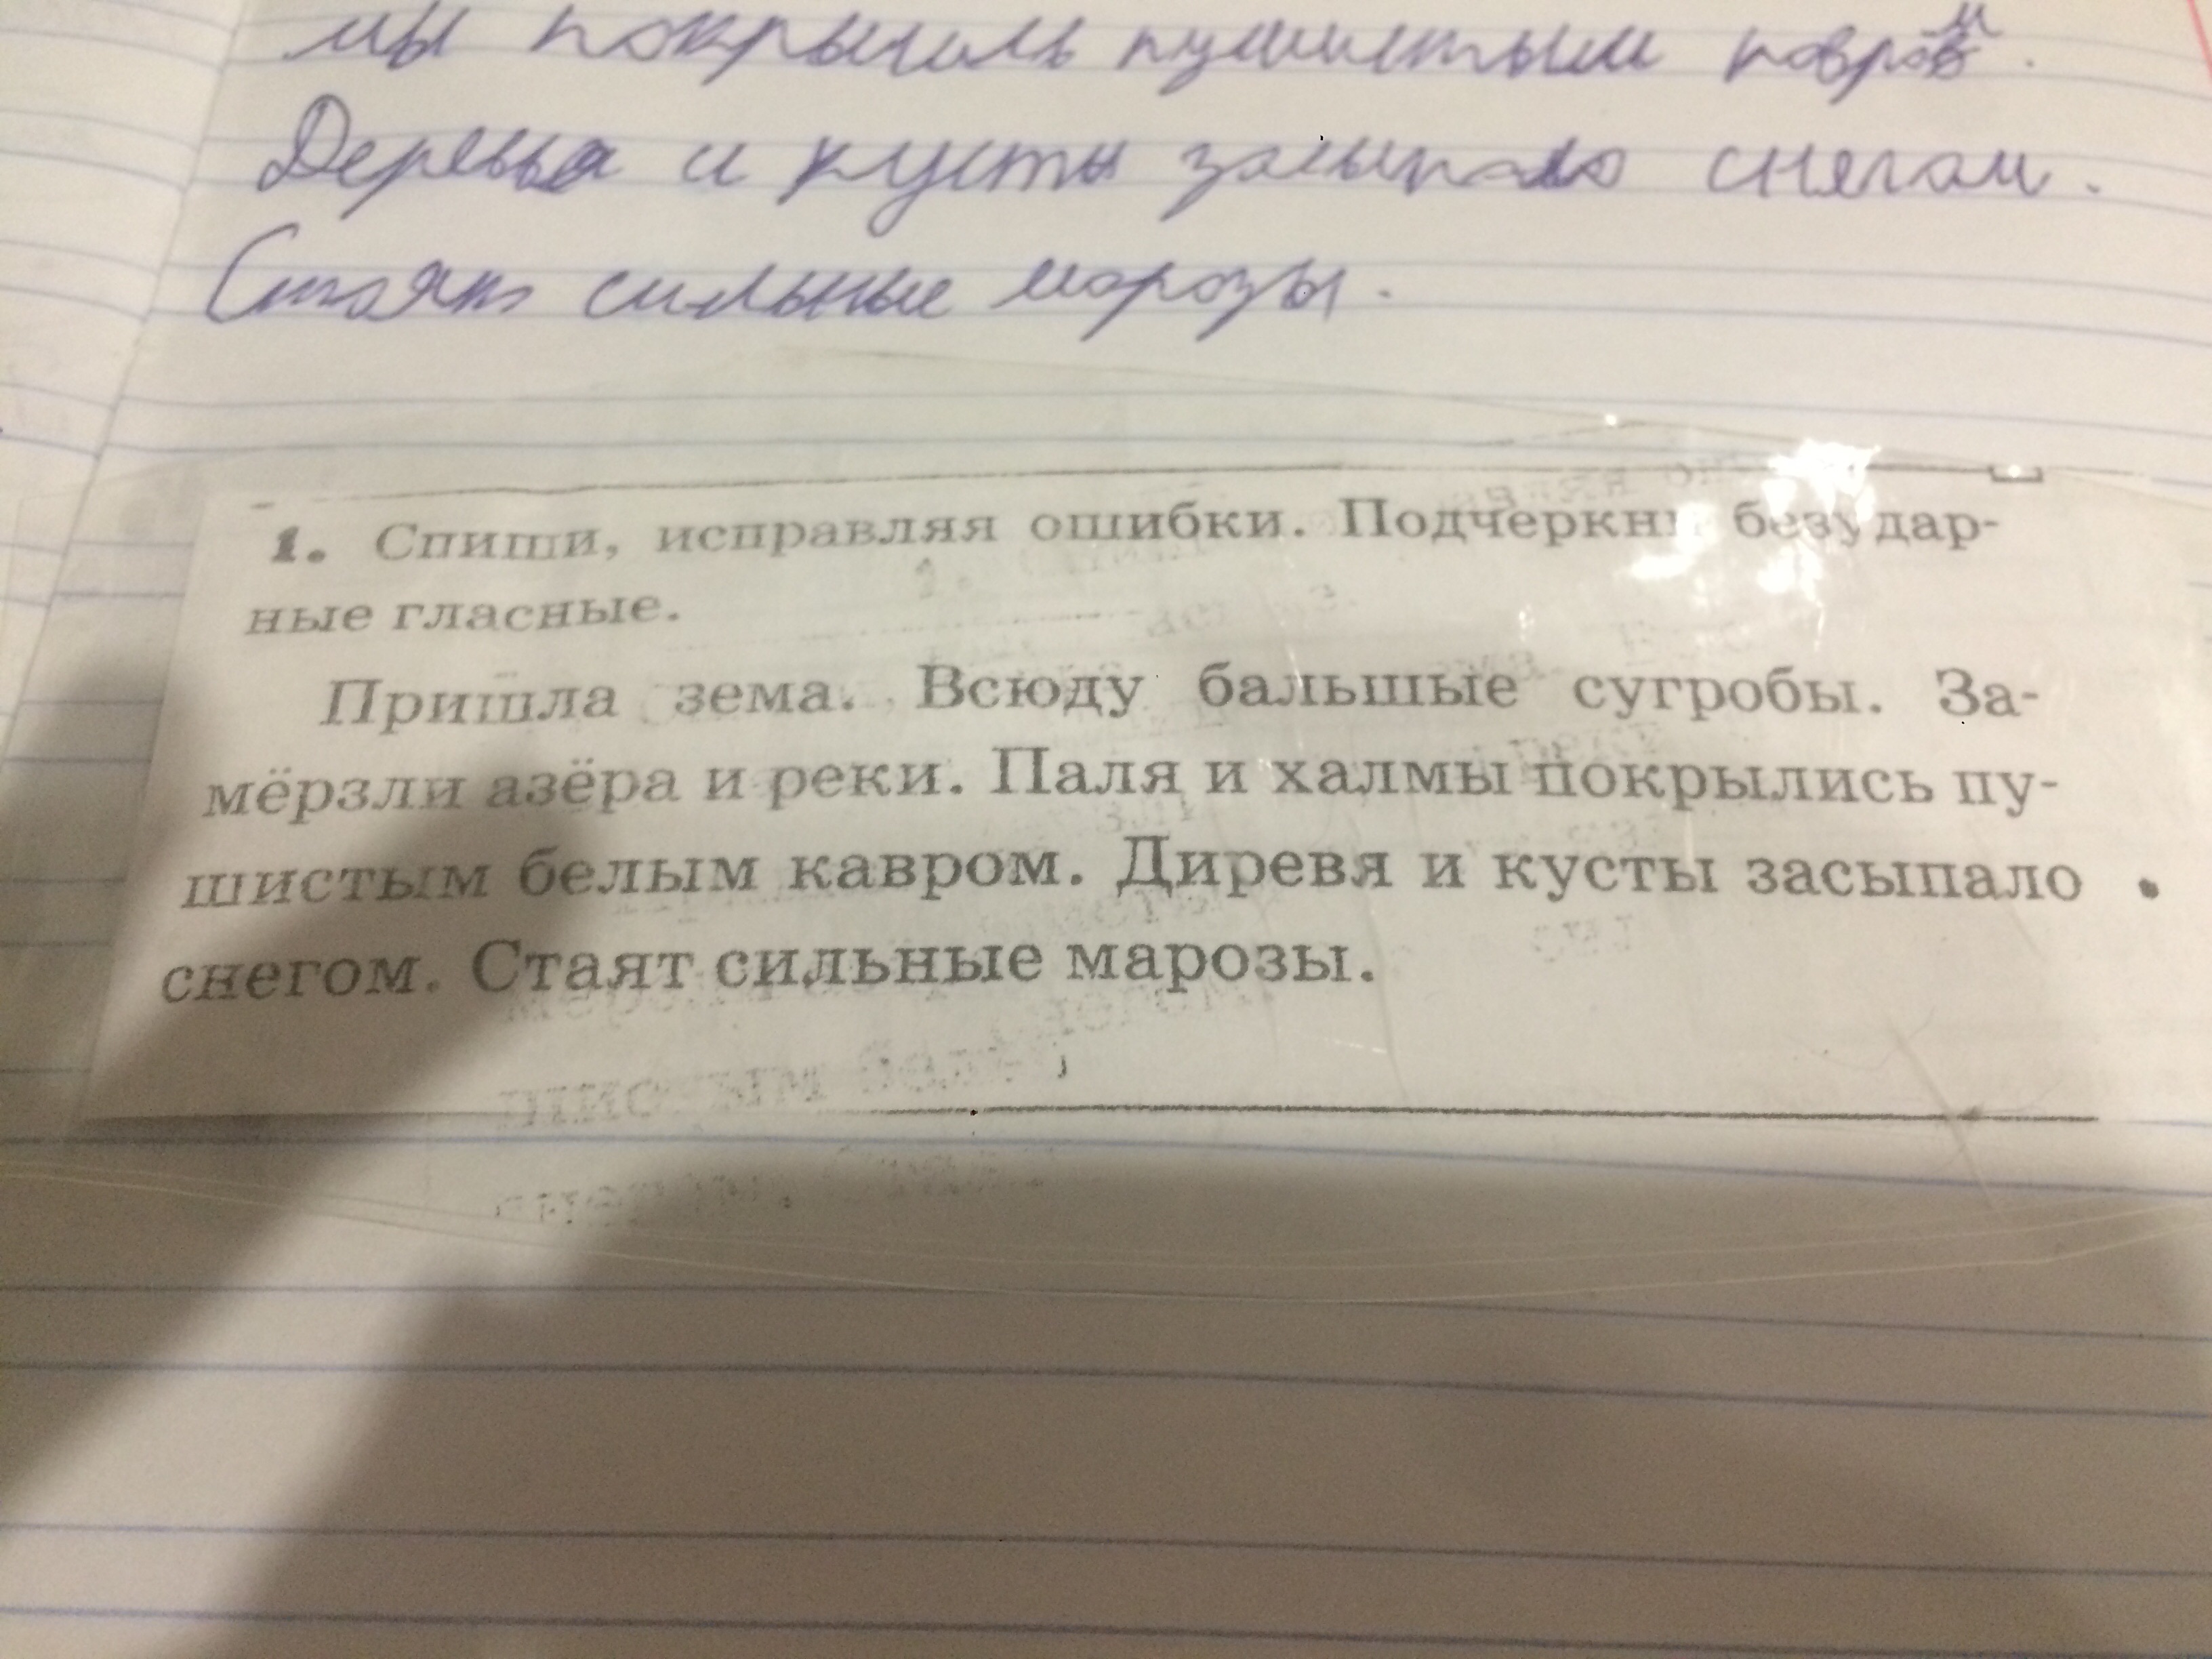 мы покрылись пушистым ковром.
Деревья и кусты засыпало снегом.
Стоят сильные морозы.
1. Спиши, исправляя ошибки. Подчеркни безудар-
ные гласные.
Пришла зема. Всюду бальшые сугробы. За-
мёрзли азёра и реки. Паля и халмы покрылись пу-
шистым белым кавром. Диревя и кусты засыпало
снегом. Стаят сильные марозы.